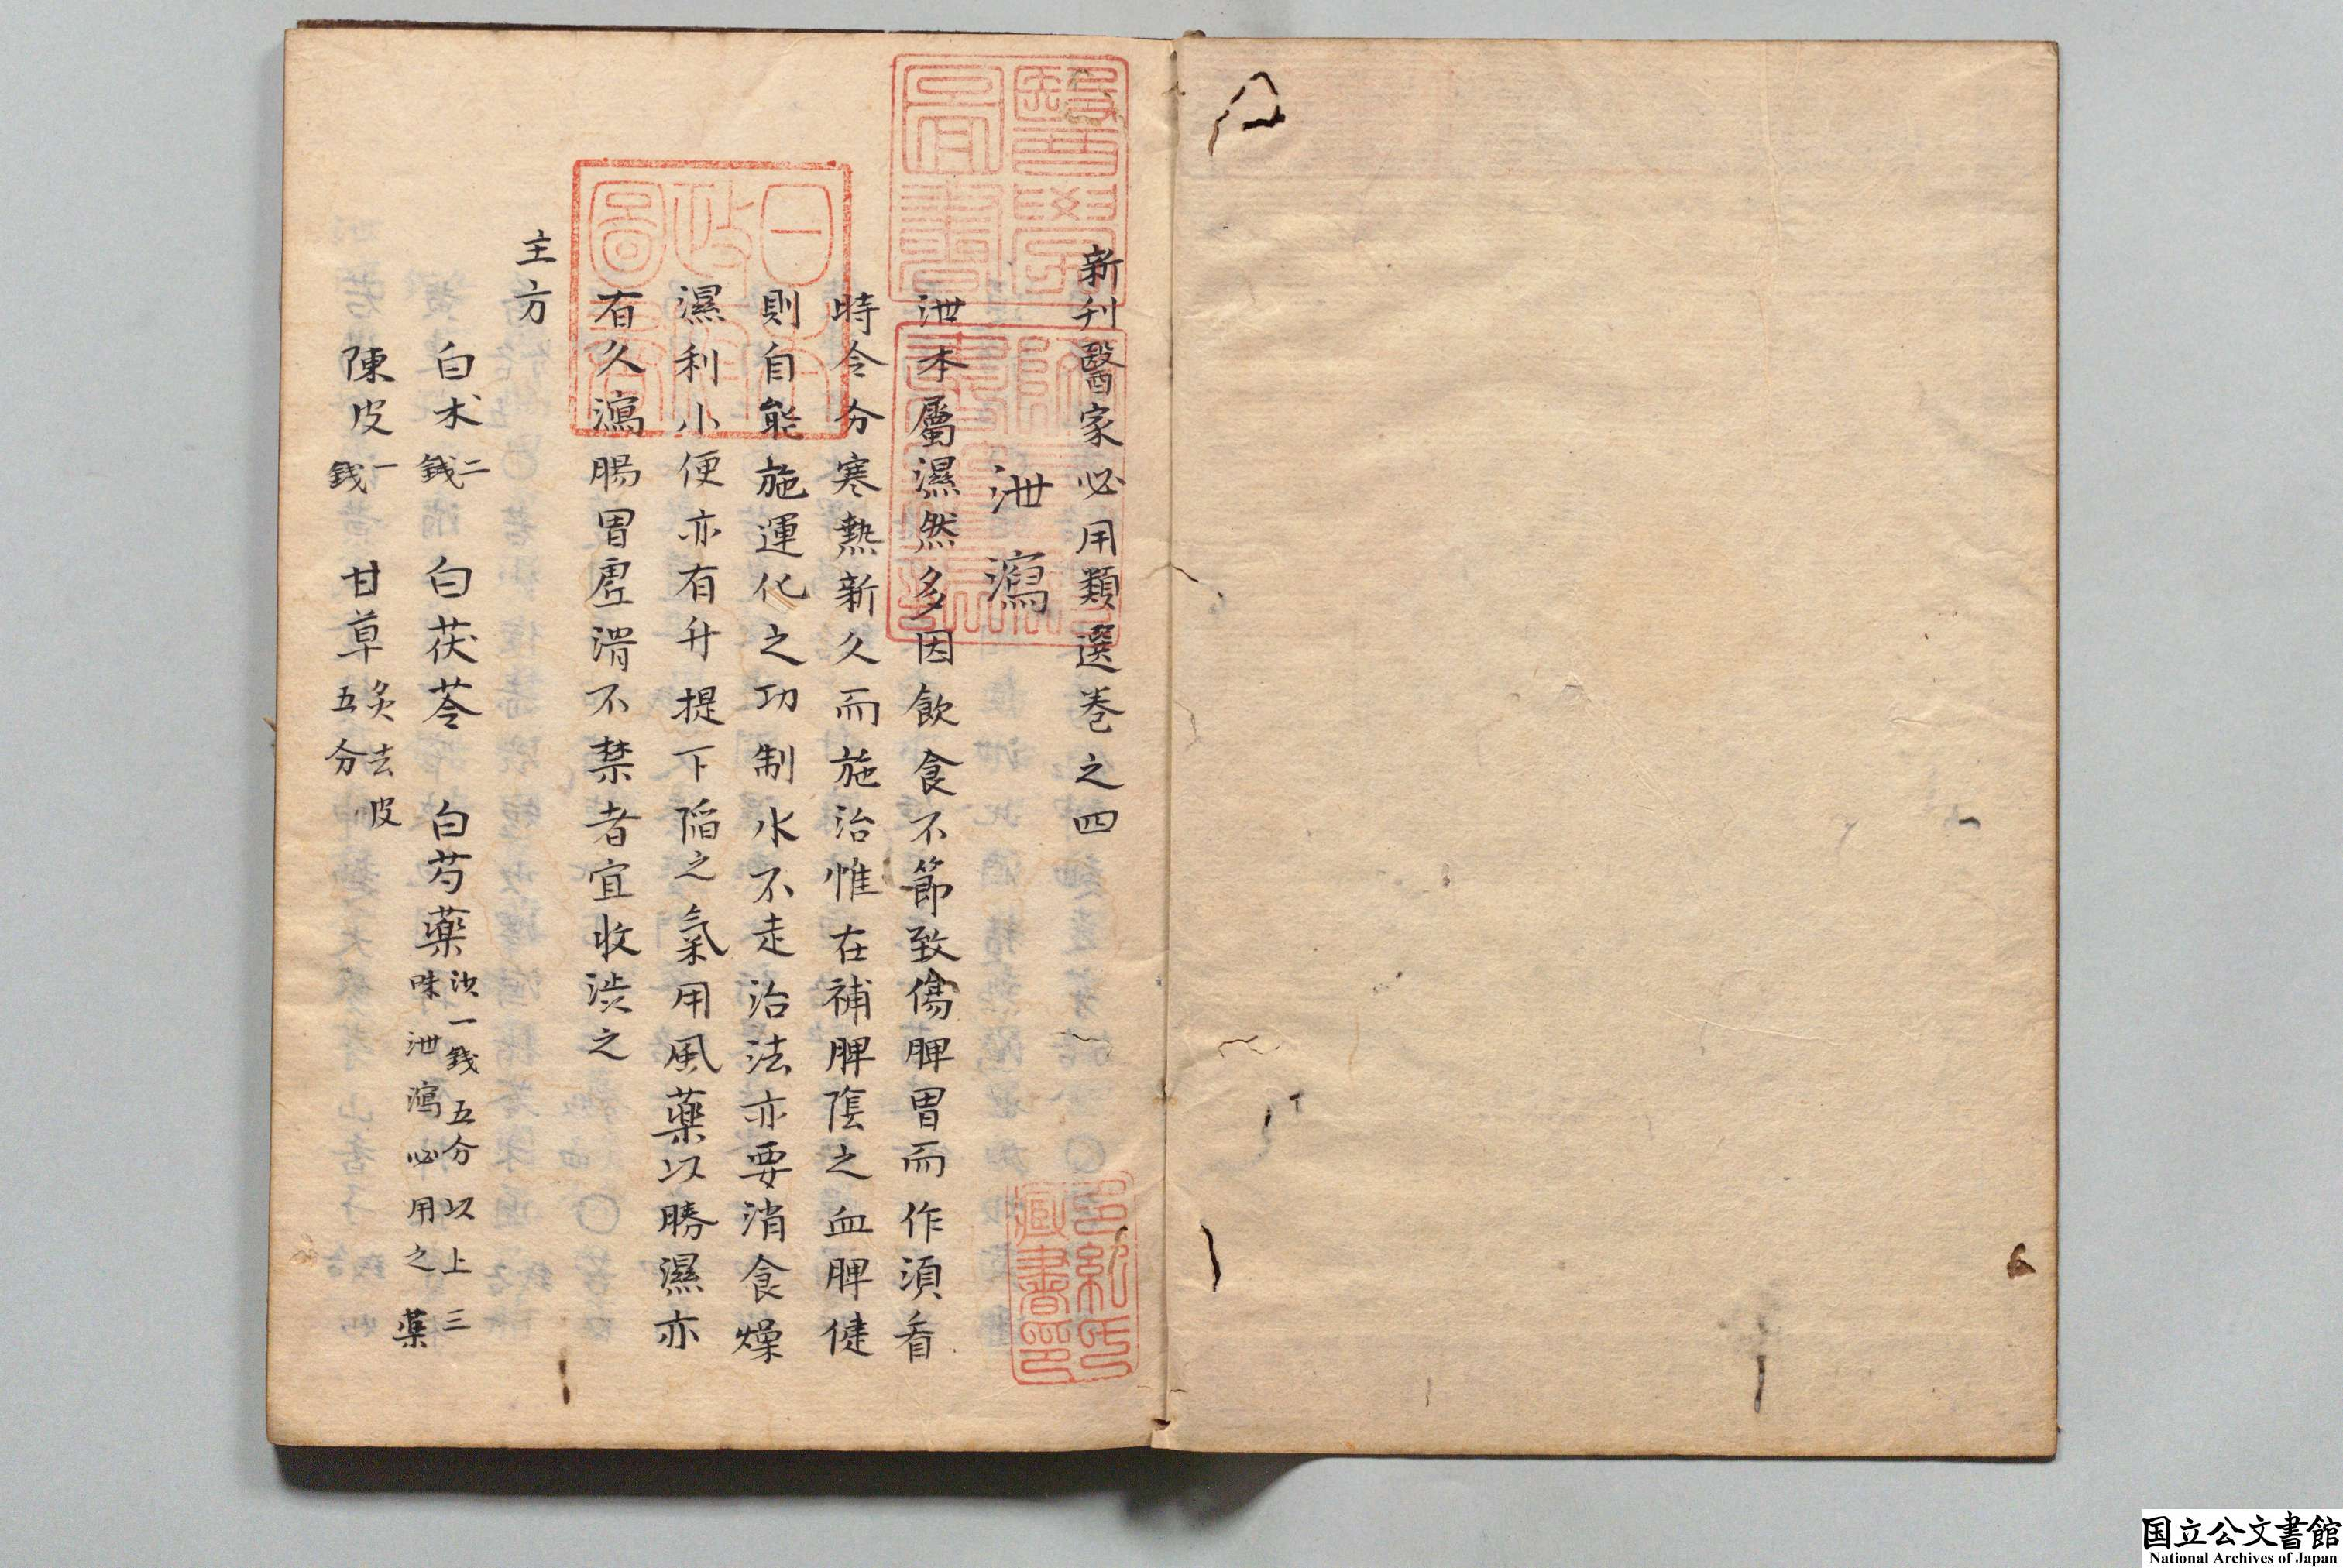 新刊醫家必用類選巻之四
泄瀉
泄本屬濕然多因飲食不節致傷脾胃而作須看
時令分寒熱新久而施治惟在補脾隂之血脾健
則自能施運化之功制水不走治法亦要消食燥
濕利小便亦有升提下陥之氣用風藥以勝濕亦
有久瀉腸胃虛滑不禁者宜收澁之
主方
白术二錢 白茯苓 白芍藥炒一錢五分以上三味泄瀉必用之藥
陳皮一錢 甘草炙去皮五分
醫學圖書
日本政府圖書
躋壽殿書籍記
藏書印
国立公文書館
National Archives of Japan